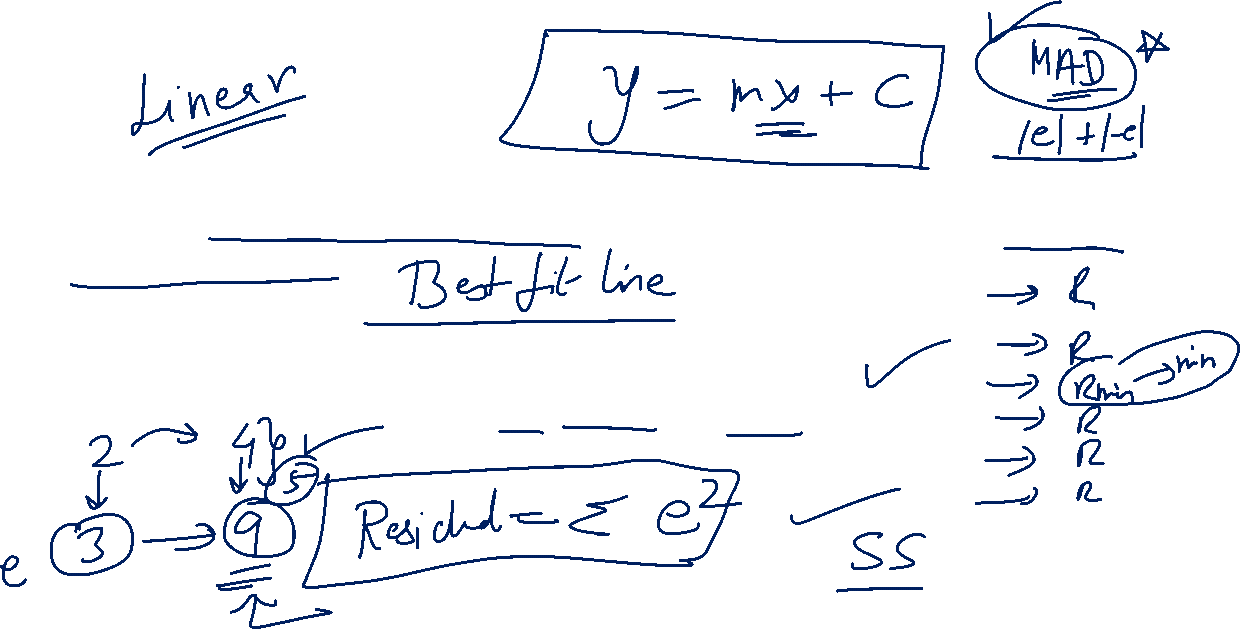 Linear
y = mx + c
MAD
|e| + |-e|
Best fit line
→ R
→ R
→ Rmin → min
→ R
→ R
→ R
2 → 4
5
3 → 9
e
Residual = Σ e²
SS